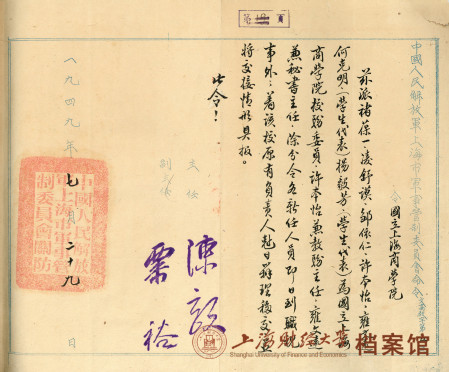 中國人民解放軍上海市軍事管制委員會命令
國立上海商學院
茲派褚葆一、凌舒謨、鄒依仁、許本怡、雍
何克明、(學生代表)楊毅芳、(學生代表)為國立上海
商學院校務委員,許本怡兼教務主任,雍文遠
兼秘書主任,除分令各新任人員即日到職視
事外,着該校原有負責人尅日辦理移交並
將交接情形具報。
此令!
主任
副主任
陳毅
粟裕
一九四九年七月二十九日
中國人民解放軍上海市軍事管制委員會關防
上海财经大学
档案馆
Shanghai University of Finance and Economics